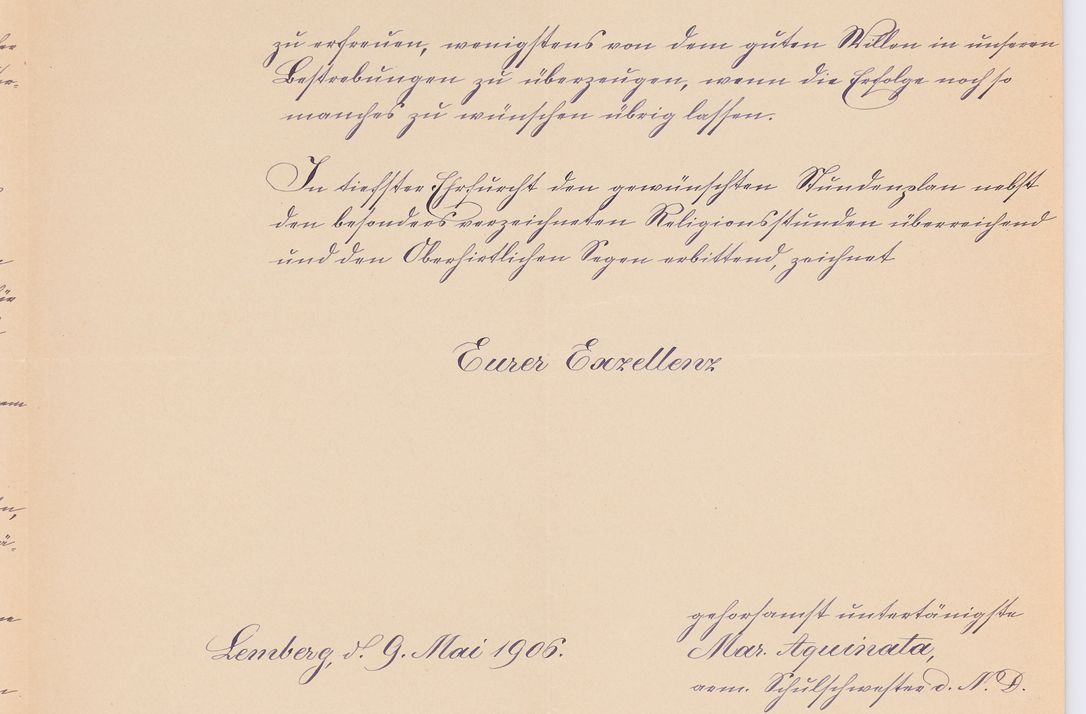 zu erfreuen, wenigstens von dem guten Willen in unseren
Bestrebungen zu überzeugen, wenn die Erfolge noch so
manches zu wünschen übrig lassen.
In tiefster Ehrfurcht den gewünschten Stundenplan nebst
den besonders verzeichneten Religionsstunden überreichend
und den Oberhirtlichen Segen erbittend, zeichnet
Eurer Exzellenz
gehorsamst untertänigste
Lemberg, d. 9. Mai 1906.
Mar. Aquinata,
arm. Schulschwester d. N. D.